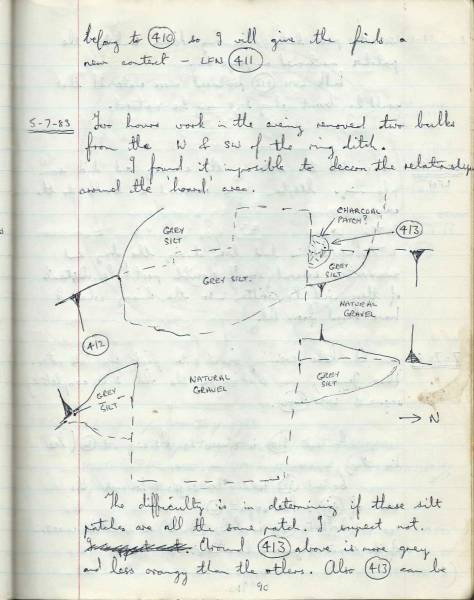 belong to (410) so I will give the finds a
new context - LFN (411)
5-7-83 Two hours work in the evening removed two bulks
from the W & SW of the ring ditch.
I found it imposible to decern the relationships
around the 'hoard' area.
CHARCOAL
PATCH?
(413)
GREY
SILT
GREY SILT.
GREY
SILT
NATURAL
GRAVEL
(412)
GREY
SILT
NATURAL
GRAVEL
GREY
SILT
→ N
The difficulty is in determining if these silt
patches are all the same patch. I suspect not.
Around (413) above is more grey
and less orangy than the others. Also (413) can be
90